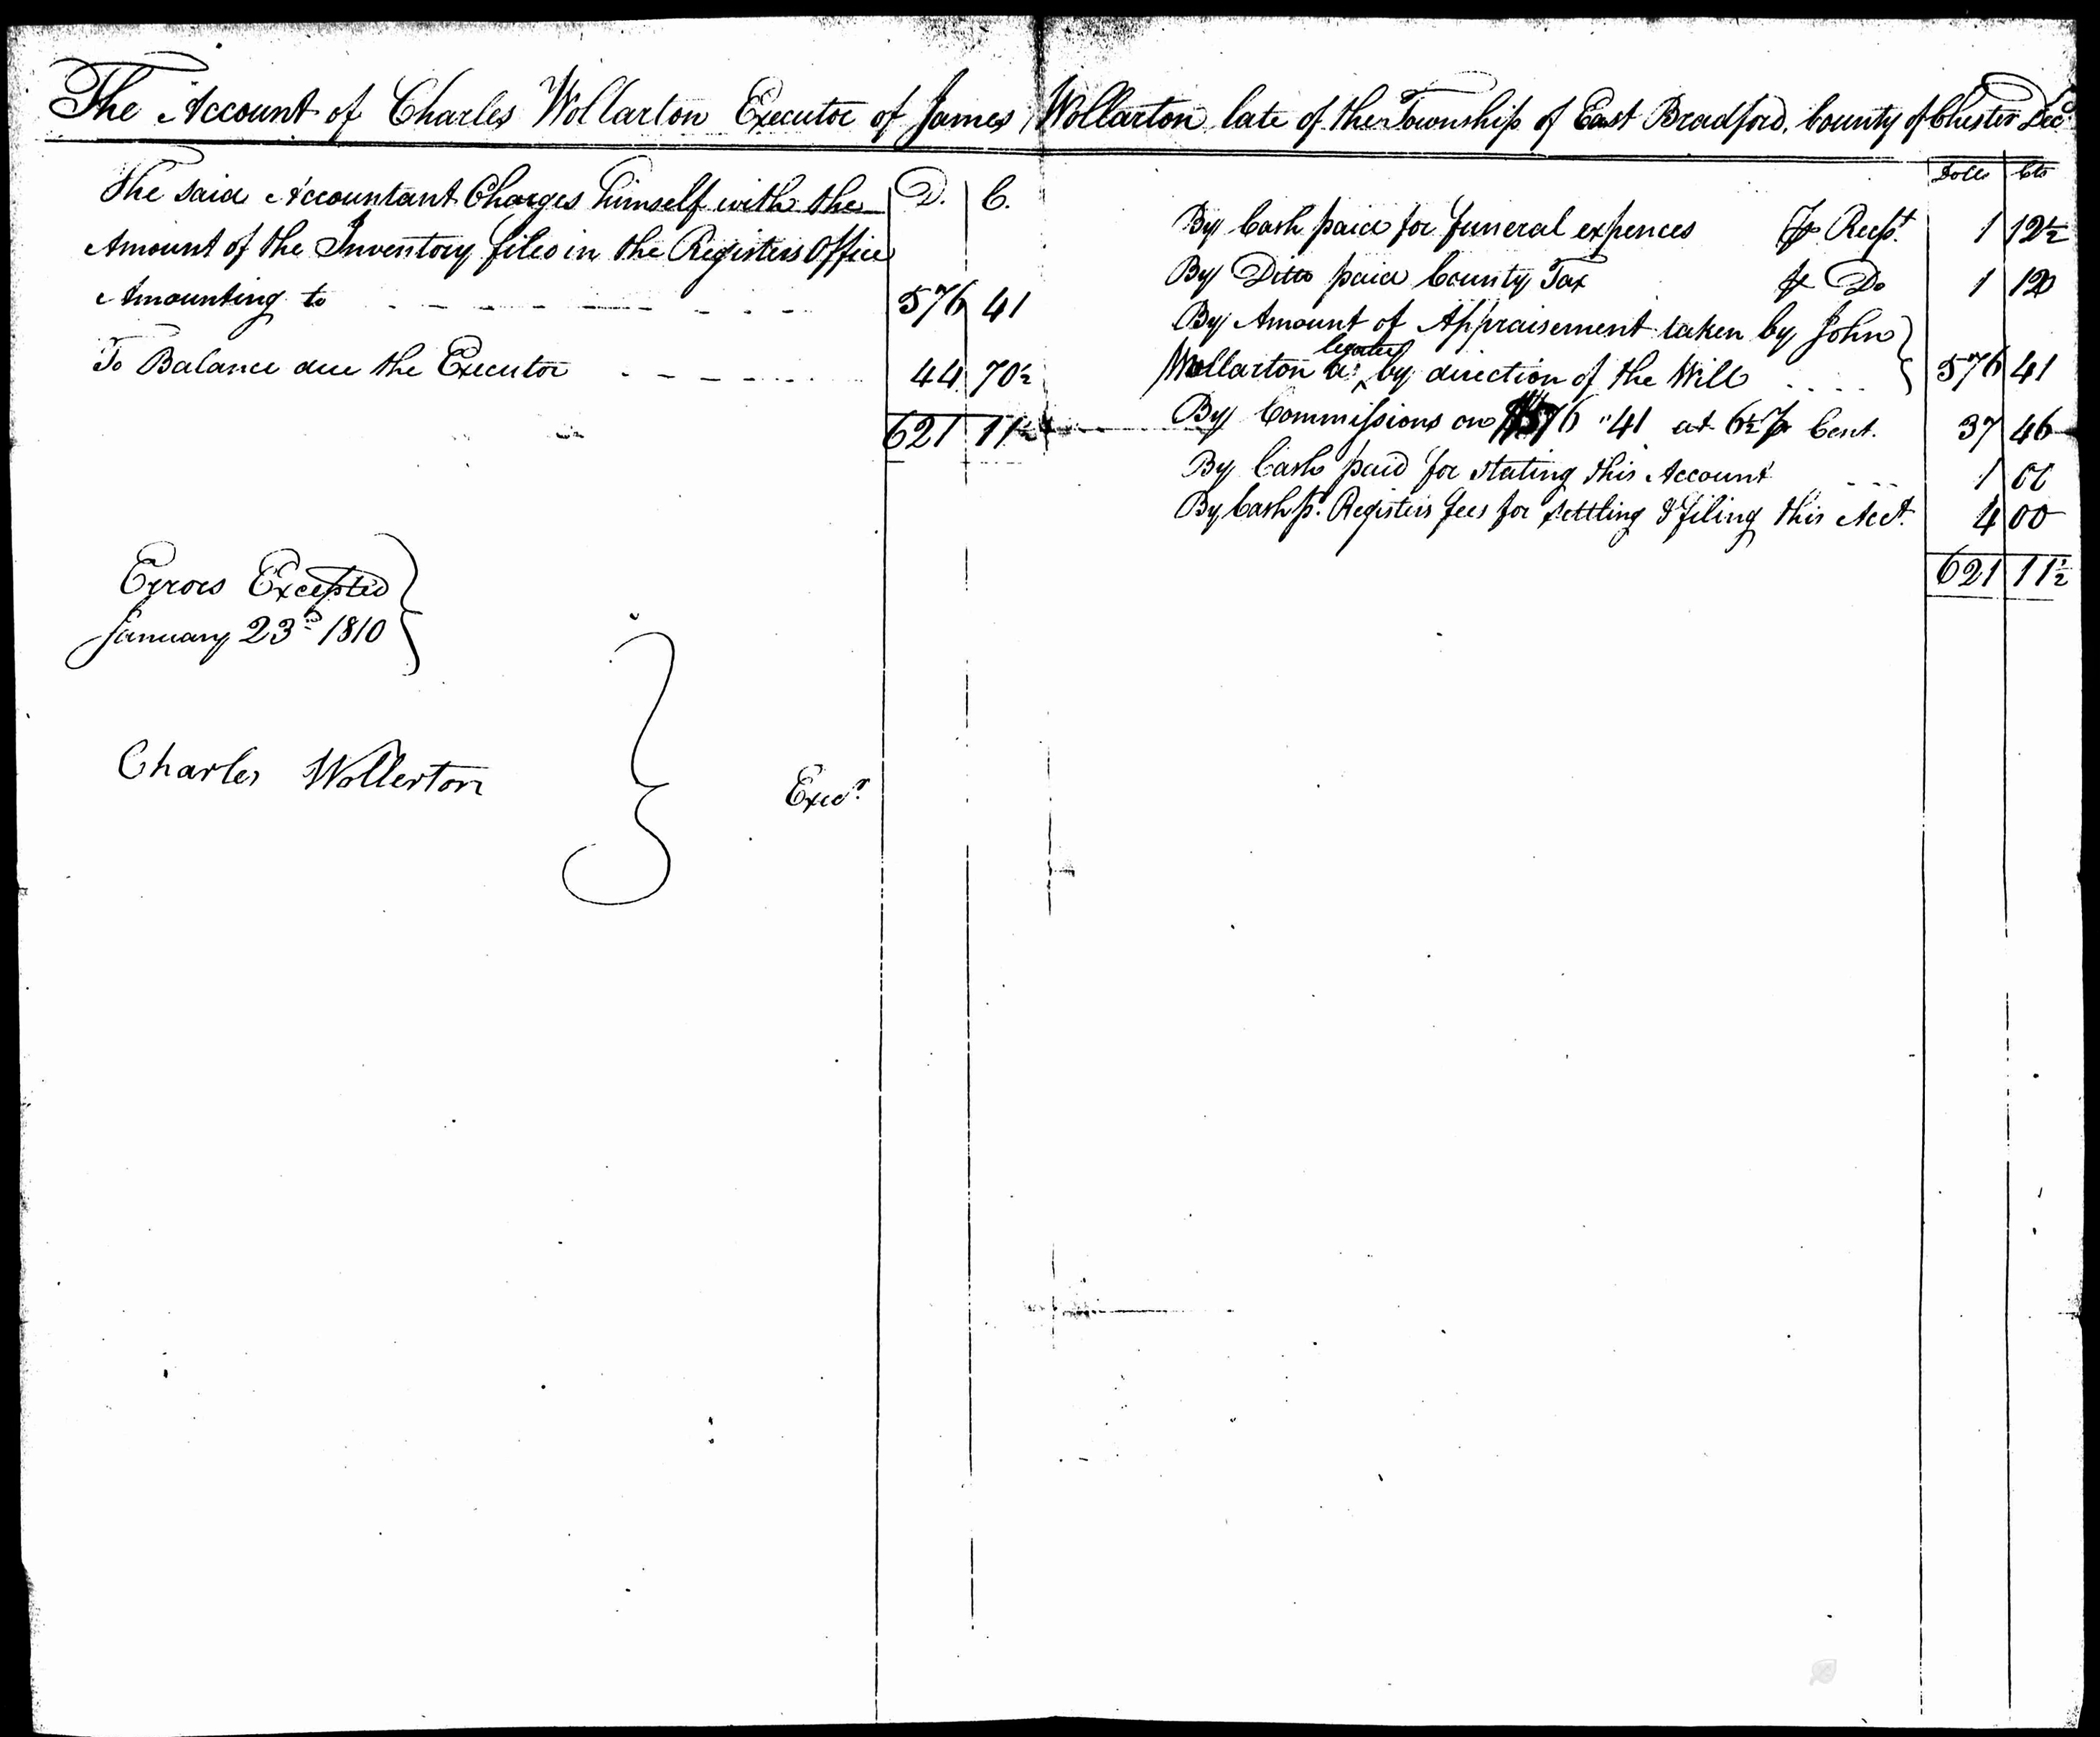 The Account of Charles Wollarton Executor of James Wollarton late of the Township of East Bradford, County of Chester Decd
The said Accountant Charges himself with the D. C.
Amount of the Inventory filed in the Registers Office
Amounting to 576 41
To Balance due the Executor 44 70½
621 11½
Errors Excepted
January 23d 1810
Charles Wollerton Execr
Dolls Cts
By Cash paid for funeral expences ⅌ Recpt. 1 12½
By Ditto paid County Tax ⅌ Do 1 12
By Amount of Appraisement taken by John
Wollarton a legatee by direction of the Will 576 41
By Commissions on 576 "41 at 6½ ⅌ Cent. 37 46
By Cash paid for stating this Account 1 00
By Cash pd. Registers fees for settling & filing this Acct. 4 00
621 11½